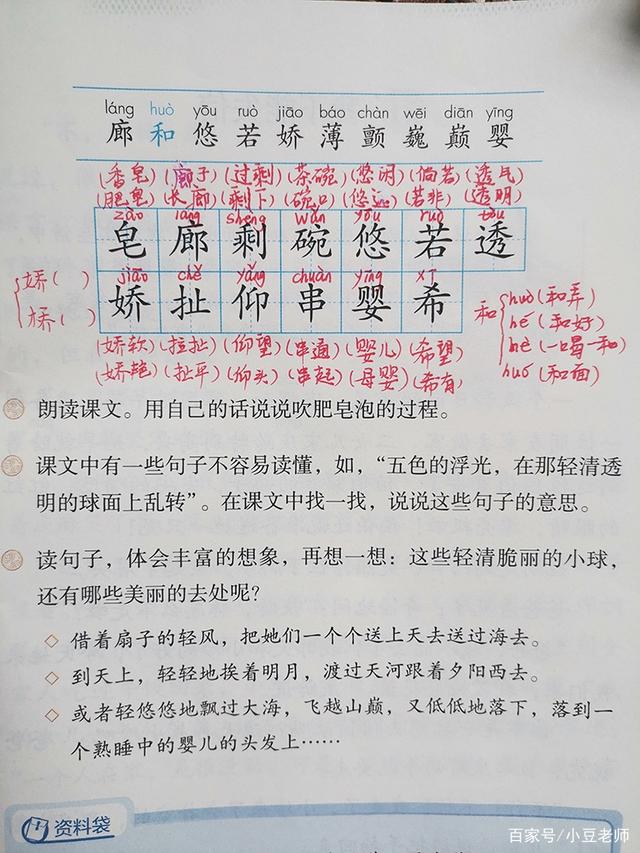 láng huò yōu ruò jiāo báo chàn wēi diān yīng
廊 和 悠 若 娇 薄 颤 巍 巅 婴
(香皂) (廊子) (过剩) (茶碗) (悠闲) (倘若) (透气)
(肥皂) (长廊) (剩下) (碗口) (悠远) (若非) (透明)
zào láng shèng wǎn yōu ruò tòu
皂 廊 剩 碗 悠 若 透
jiāo chě yǎng chuàn yīng xī
娇 扯 仰 串 婴 希
娇( )
桥( )
和
huò (和弄)
hé (和好)
hè (一唱一和)
huó (和面)
(娇软) (拉扯) (仰望) (串通) (婴儿) (希望)
(娇艳) (扯平) (仰头) (串起) (母婴) (希有)
朗读课文。用自己的话说说吹肥皂泡的过程。
课文中有一些句子不容易读懂，如，“五色的浮光，在那轻清透
明的球面上乱转”。在课文中找一找，说说这些句子的意思。
读句子，体会丰富的想象，再想一想：这些轻清脆丽的小球，
还有哪些美丽的去处呢？
◇ 借着扇子的轻风，把她们一个个送上天去送过海去。
◇ 到天上，轻轻地挨着明月，渡过天河跟着夕阳西去。
◇ 或者轻悠悠地飘过大海，飞越山巅，又低低地落下，落到一
个熟睡中的婴儿的头发上……
资料袋
百家号/小豆老师